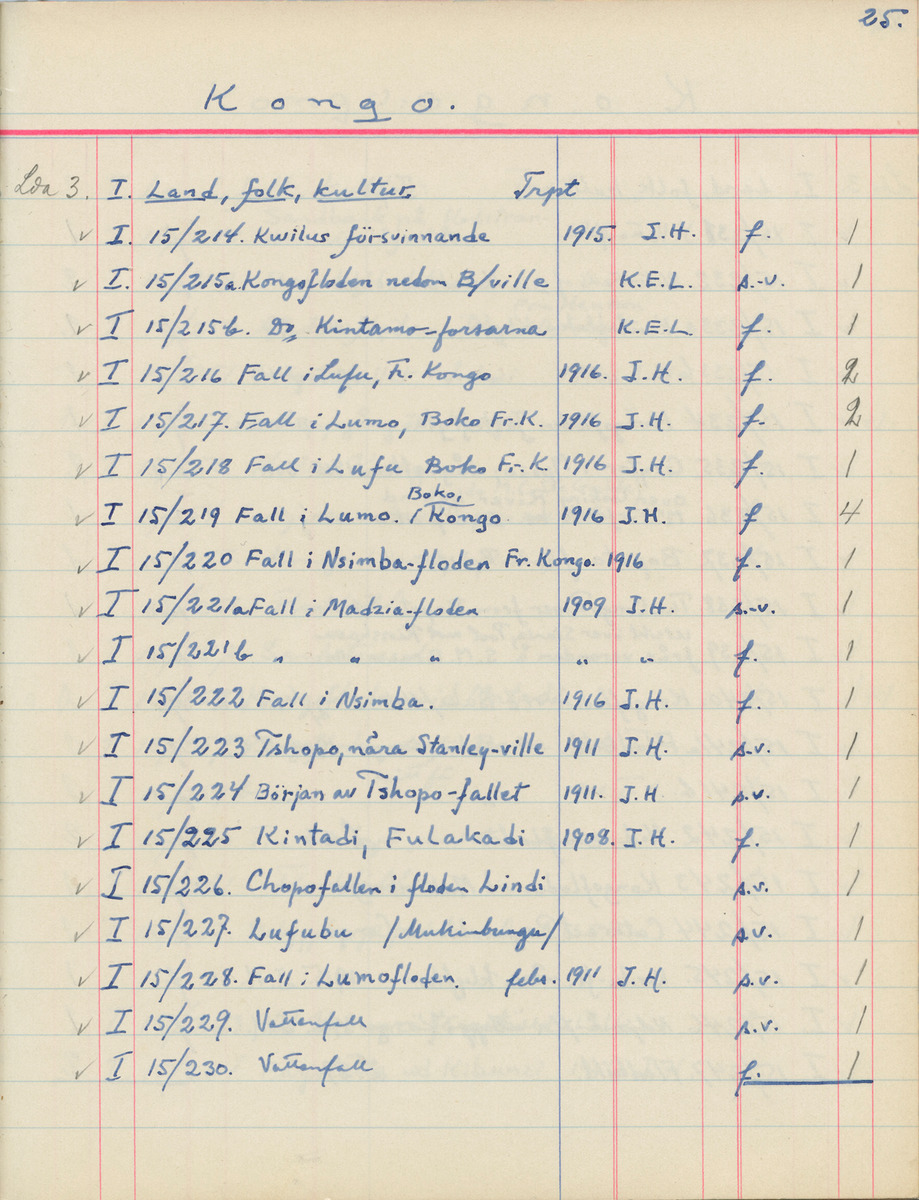 25.
Kongo.
Lda 3. I. Land, folk, kultur. Trpt
✓ I. 15/214. Kwilus försvinnande 1915. J.H. f. 1
✓ I. 15/215a. Kongofloden nedom B/ville K.E.L. s.-v. 1
✓ I 15/215b. Do, Kintamo-forsarna K.E.L f. 1
✓ I 15/216 Fall i Lufu, Fr. Kongo 1916. J.H. f. 2
✓ I 15/217. Fall i Lumo, Boko Fr.K. 1916 J.H. f. 2
✓ I 15/218 Fall i Lufu Boko Fr.K. 1916 J.H. f. 1
Boko,
✓ I 15/219 Fall i Lumo. / Kongo 1916 J.H. f 4
✓ I 15/220 Fall i Nsimba-floden Fr. Kongo. 1916 f. 1
✓ I 15/221a Fall i Madzia-floden 1909 J.H. s.-v. 1
✓ I 15/221b " " " " " f. 1
✓ I 15/222 Fall i Nsimba. 1916 J.H. f. 1
✓ I 15/223 Tshopo, nära Stanley-ville 1911 J.H. s.v. 1
✓ I 15/224 Början av Tshopo-fallet 1911. J.H s.v. 1
✓ I 15/225 Kintadi, Fulakadi 1908. J.H. f. 1
✓ I 15/226. Chopofallen i floden Lindi s.v. 1
✓ I 15/227. Lufubu /Mukimbungu/ s.v. 1
✓ I 15/228. Fall i Lumofloden. febr. 1911 J.H. s.v. 1
✓ I 15/229. Vattenfall s.v. 1
✓ I 15/230. Vattenfall f. 1